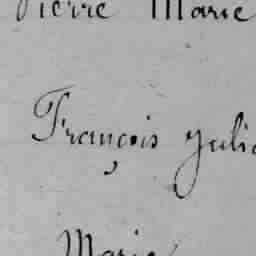 Pierre Marie
François
Marie